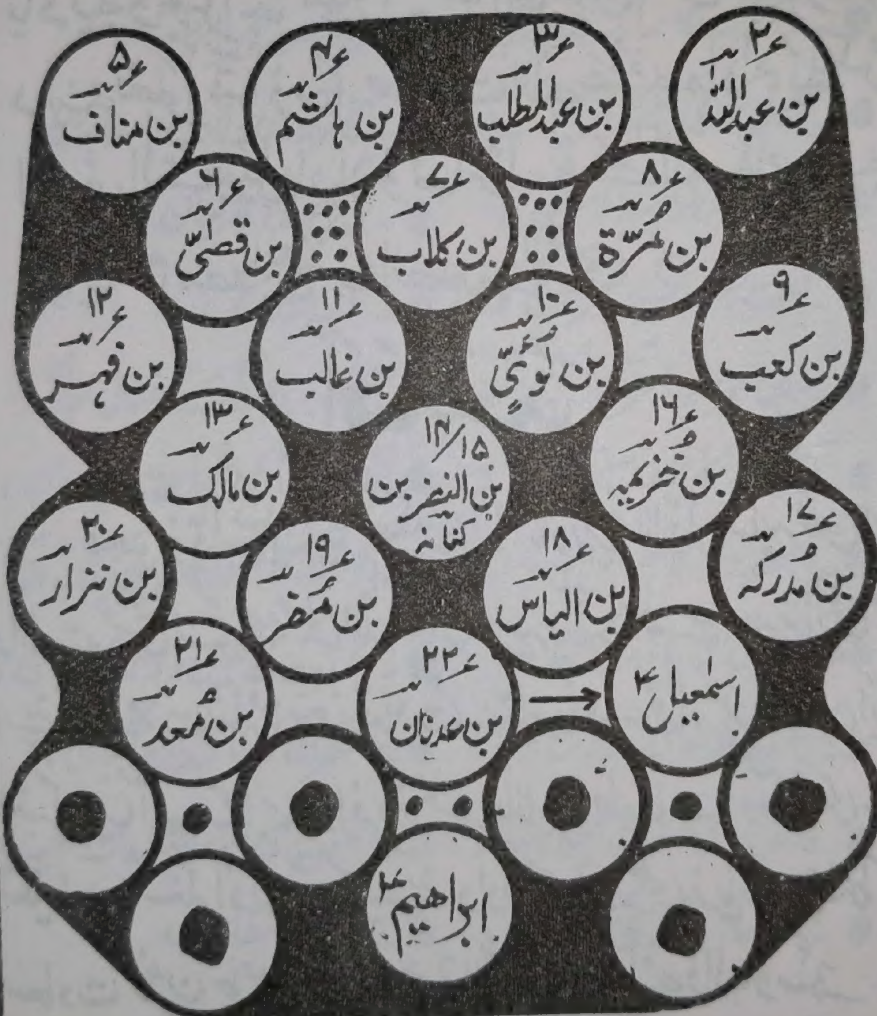 ۲
بن عبداللہ
۳
بن عبدالمطلب
۴
بن ہاشم
۵
بن مناف
۸
بن مُرّة
۷
بن کلاب
۶
بن قصیّ
۹
بن کعب
۱۰
بن لُوئیّ
۱۱
بن غالب
۱۲
بن فہر
۱۶
بن خُزیمہ
۱۴/۱۵
بن النضر بن
کنانہ
۱۳
بن مالک
۱۷
بن مُدرکہ
۱۸
بن الیاس
۱۹
بن مُضر
۲۰
بن نزار
اسمٰعیلؑ
۲۲
بن عدنان
۲۱
بن مُعد
ابراھیمؑ